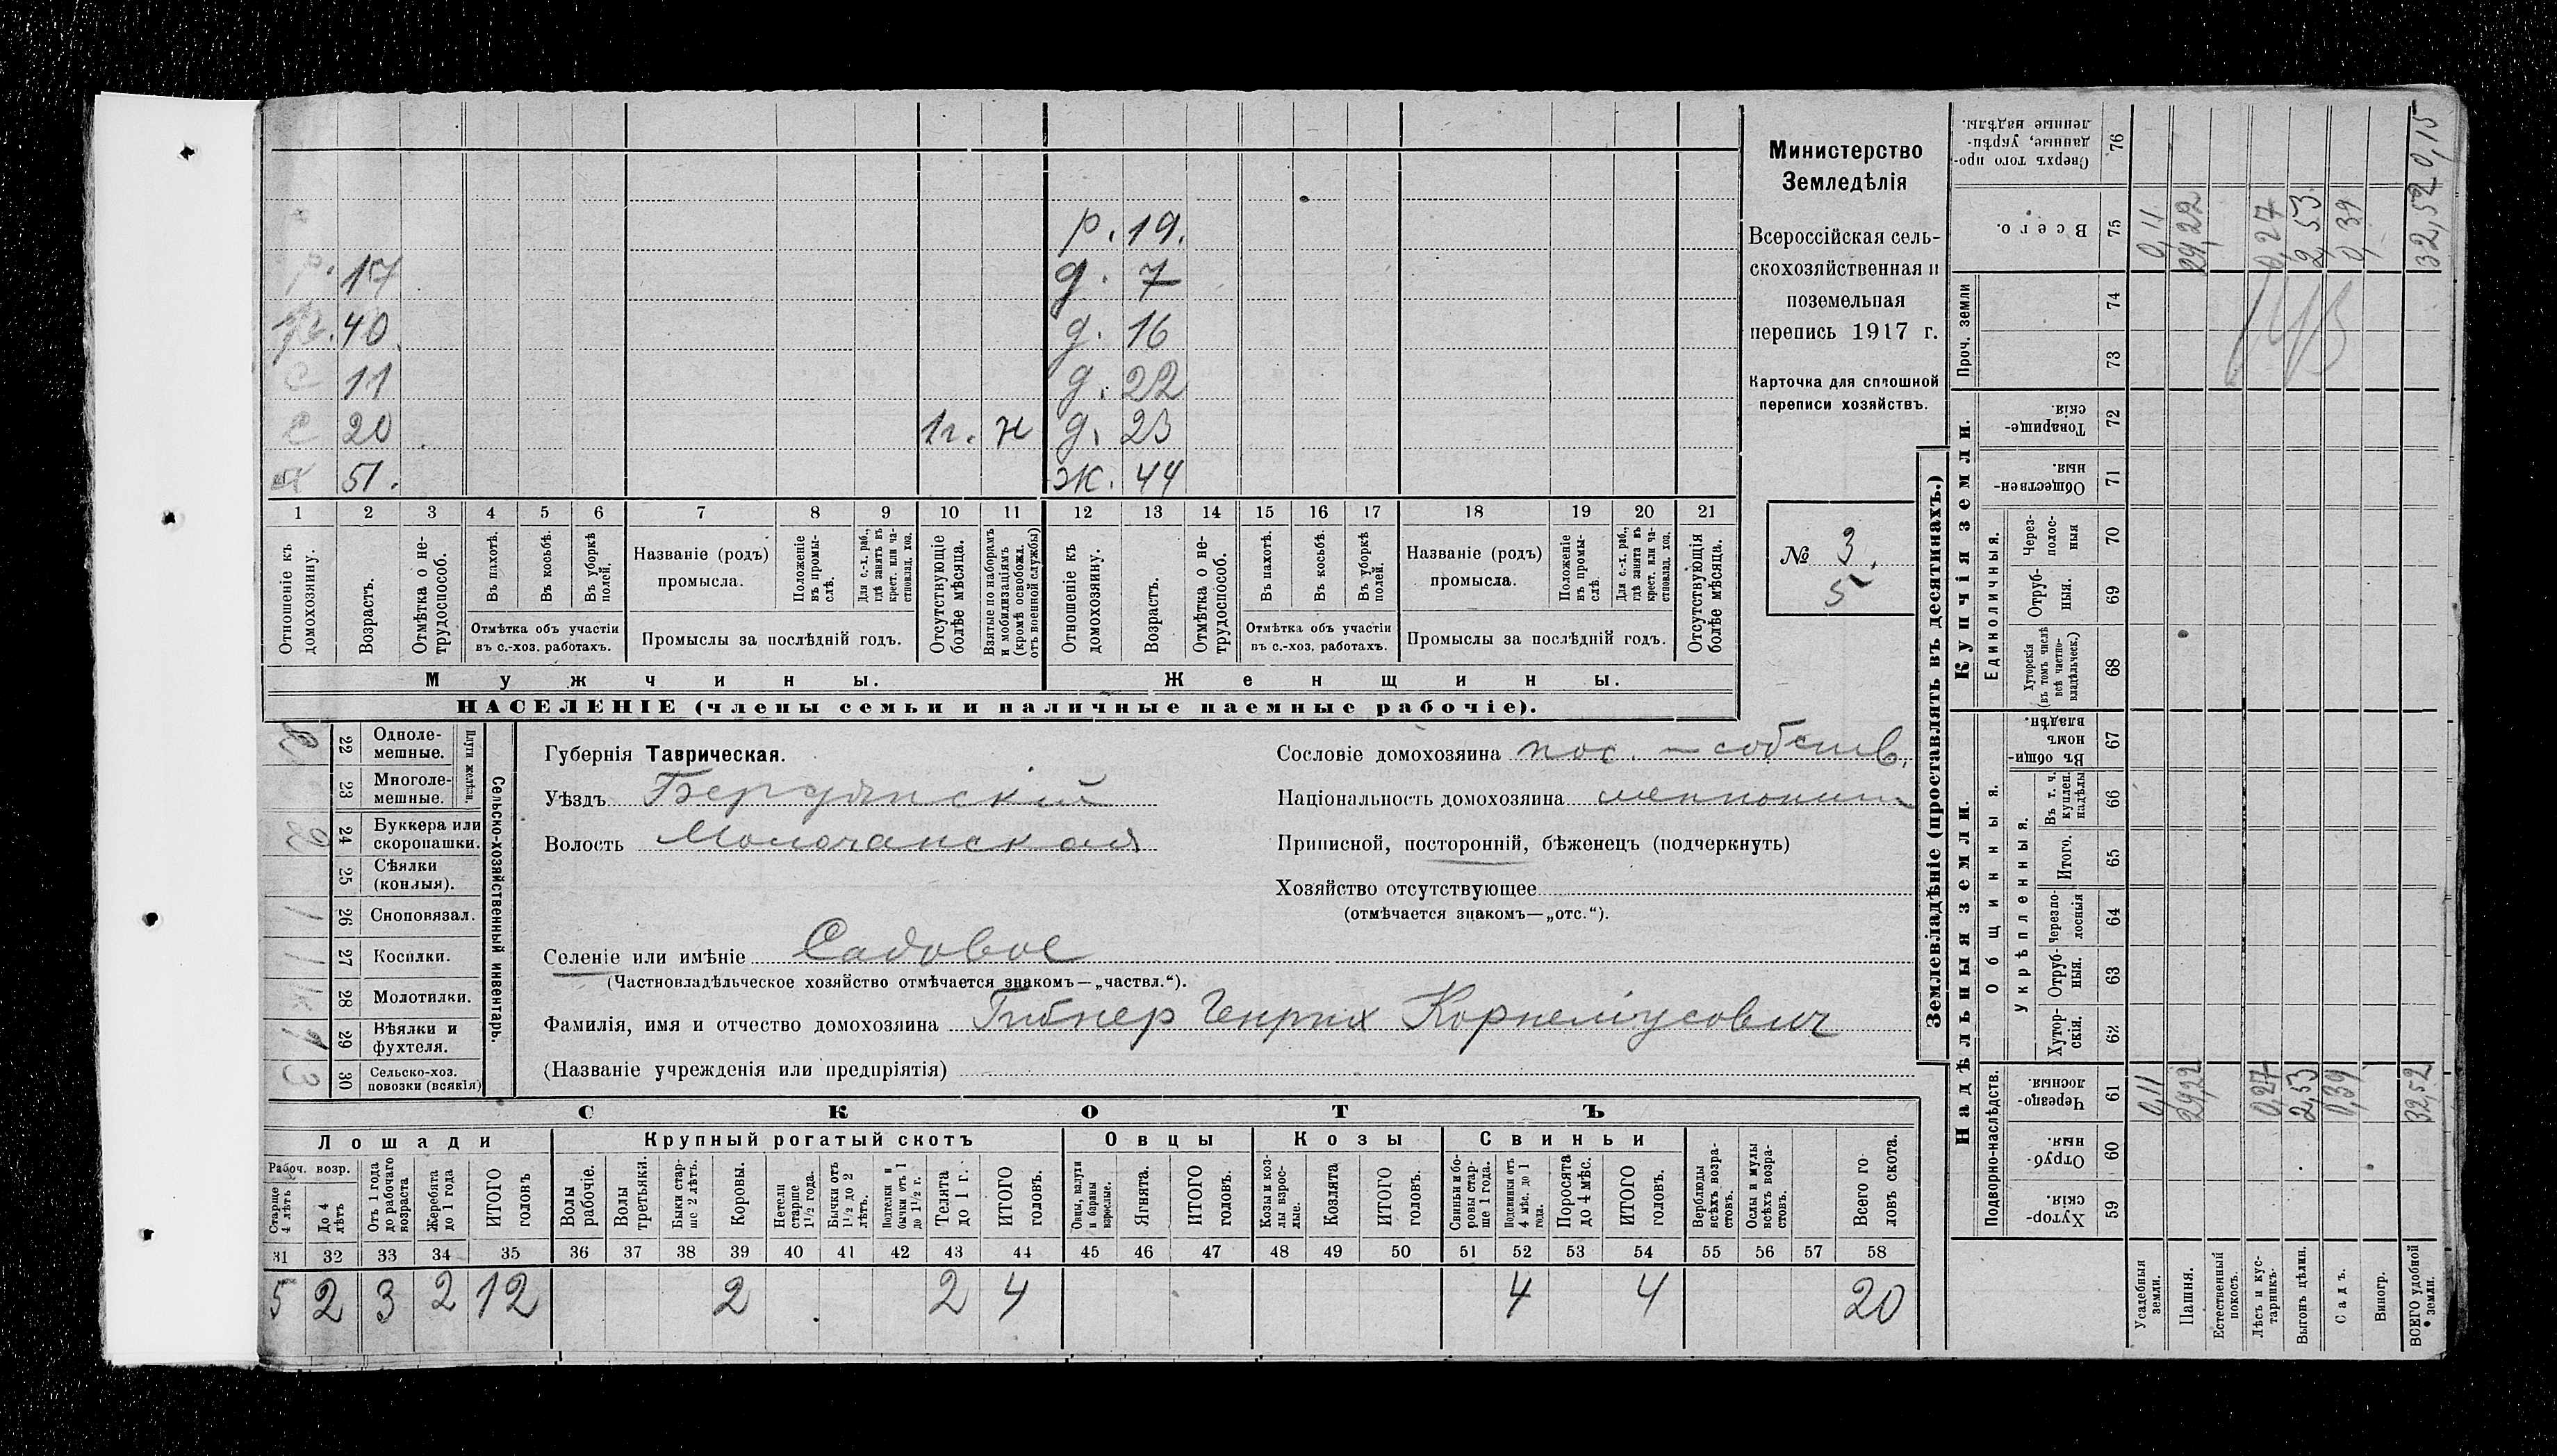 р. 19.
р. 17 д. 7
р. 40 д. 16
с 11 д. 22
с 20 1г. н д. 23
х 51. ж. 44
1 2 3 4 5 6 7 8 9 10 11 12 13 14 15 16 17 18 19 20 21
Отношеніе къ домохозяину.
Возрастъ.
Отмѣтка о не-
трудоспособ.
Въ пахотѣ.
Въ косьбѣ.
Въ уборкѣ
полей.
Отмѣтка объ участіи
въ с.-хоз. работахъ.
Названіе (родъ)
промысла.
Положеніе
въ промы-
слѣ.
Для с.-х. раб.,
гдѣ занятъ въ
крест. или ча-
стновлад. хоз.
Промыслы за послѣдній годъ.
Отсутствующіе
болѣе мѣсяца.
Взятые по наборамъ
и мобилизаціямъ
(кромѣ освобожд.
отъ военной службы)
Отношеніе къ
домохозяину.
Возрастъ.
Отмѣтка о не-
трудоспособ.
Въ пахотѣ.
Въ косьбѣ.
Въ уборкѣ
полей.
Отмѣтка объ участіи
въ с.-хоз. работахъ.
Названіе (родъ)
промысла.
Положеніе
въ промы-
слѣ.
Для с.-х. раб.,
гдѣ занята въ
крест. или ча-
стновлад. хоз.
Промыслы за послѣдній годъ.
Отсутствующія
болѣе мѣсяца.
Мужчины. Женщины.
НАСЕЛЕНІЕ (члены семьи и наличные наемные рабочіе).
Министерство
Земледѣлія
Всероссійская сель-
скохозяйственная и
поземельная
перепись 1917 г.
Карточка для сплошной
переписи хозяйствъ.
№ 3.
5
Сельско-хозяйственный инвентарь.
Плуги желѣзн.
2 22 Одноле-
мешные.
23 Многоле-
мешные.
2 24 Буккера или
скоропашки.
25 Сѣялки
(конныя).
1 26 Сноповязал.
1 27 Косилки.
1к 28 Молотилки.
1 29 Вѣялки и
фухтеля.
3 30 Сельско-хоз.
повозки (всякія)
Губернія Таврическая.
Уѣздъ Бердянскій
Волость Молочанская
Селеніе или имѣніе Садовое
(Частновладѣльческое хозяйство отмѣчается знакомъ—„частвл.“).
Фамилія, имя и отчество домохозяина Гибнер Генрих Корнеліусович
(Названіе учрежденія или предпріятія)
Сословіе домохозяина пос. - собств.
Національность домохозяина меннонит
Приписной, посторонній, бѣженецъ (подчеркнуть)
Хозяйство отсутствующее
(отмѣчается знакомъ—„отс.“).
СКОТЪ
Лошади Крупный рогатый скотъ Овцы Козы Свиньи
Рабоч. возр.
Старше
4 лѣтъ
До 4
лѣтъ
Отъ 1 года
до рабочаго
возраста
Жеребята
до 1 года
ИТОГО
головъ
Волы
рабочіе.
Волы
третьяки.
Быки стар-
ше 2 лѣтъ.
Коровы.
Нетели
старше
1½ года.
Бычки отъ
1½ до 2
лѣтъ.
Подтелки и
бычки отъ 1
до 1½ г.
Телята
до 1 г.
ИТОГО
головъ.
Овцы, валухи
и бараны
взрослые.
Ягнята.
ИТОГО
головъ.
Козы и коз-
лы взрос-
лые.
Козлята
ИТОГО
головъ.
Свиньи и бо-
ровы стар-
ше 1 года.
Подсвинки отъ
4 мѣс. до 1
года.
Поросята
до 4 мѣс.
ИТОГО
головъ.
Верблюды
всѣхъ возра-
стовъ.
Ослы и мулы
всѣхъ возра-
стовъ.
Всего го-
ловъ скота.
31 32 33 34 35 36 37 38 39 40 41 42 43 44 45 46 47 48 49 50 51 52 53 54 55 56 57 58
5 2 3 2 12 2 2 4 4 4 20
Землевладѣніе (проставлять въ десятинахъ.)
Надѣльныя земли. Купчія земли.
Подворно-наслѣдств.
Общинныя.
Укрѣпленныя.
Единоличныя.
Проч. земли
Хутор-
скія. 59
Отруб-
ныя. 60
Черезпо-
лосныя 61
Хутор-
скія. 62
Отруб-
ныя. 63
Черезпо-
лосныя 64
Итого. 65
Въ т. ч.
куплен.
надѣлы 66
Въ общи-
номъ
владѣн. 67
Хуторскія
(въ томъ числѣ
всѣ частно-
владѣльческ.) 68
Отруб-
ныя. 69
Через-
полос-
ныя 70
Обществен-
ныя. 71
Товарище-
скія. 72
73
74
Всего. 75
Сверхъ того про-
данные, укрѣп-
ленные надѣлы. 76
Усадебныя
земли. 0,11 0,11
Пашня. 29,22 29,22
Естественный
покосъ.
Лѣсъ и кус-
тарникъ. 0,27 0,27
Выгонъ цѣлин. 2,53 2,53
Садъ. 0,39 0,39
Виногр.
ВСЕГО удобной
земли. 32,52 32,52 0,15